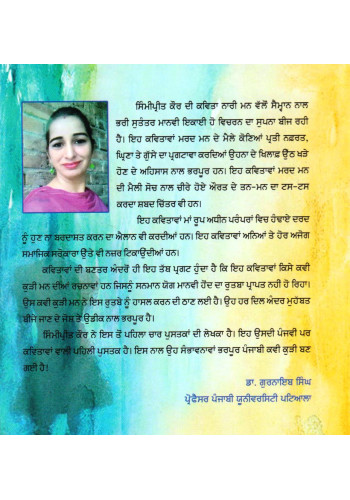 ਸਿੰਮੀਪ੍ਰੀਤ ਕੌਰ ਦੀ ਕਵਿਤਾ ਨਾਰੀ ਮਨ ਵੱਲੋਂ ਸੈਮਾਨ ਨਾਲ
ਭਰੀ ਸੁਤੰਤਰ ਮਾਨਵੀ ਇਕਾਈ ਹੋ ਵਿਚਰਨ ਦਾ ਸੁਪਨਾ ਬੀਜ ਰਹੀ
ਹੈ। ਇਹ ਕਵਿਤਾਵਾਂ ਮਰਦ ਮਨ ਦੇ ਮੈਲੇ ਕੋਣਿਆਂ ਪ੍ਰਤੀ ਨਫ਼ਰਤ,
ਘ੍ਰਿਣਾ ਤੇ ਗੁੱਸੇ ਦਾ ਪ੍ਰਗਟਾਵਾ ਕਰਦਿਆਂ ਉਹਨਾ ਦੇ ਖਿਲਾਫ਼ ਉੱਠ ਖੜੇ
ਹੋਣ ਦੇ ਅਹਿਸਾਸ ਨਾਲ ਭਰਪੂਰ ਹਨ। ਇਹ ਕਵਿਤਾਵਾਂ ਮਰਦ ਮਨ
ਦੀ ਮੈਲੀ ਸੋਚ ਨਾਲ ਚੀਰੇ ਹੋਏ ਔਰਤ ਦੇ ਤਨ-ਮਨ ਦਾ ਟਸ-ਟਸ
ਕਰਦਾ ਸ਼ਬਦ ਚਿੱਤਰ ਵੀ ਹਨ।
ਇਹ ਕਵਿਤਾਵਾਂ ਮਾਂ ਰੂਪ ਅਧੀਨ ਪਰੰਪਰਾਂ ਵਿਚ ਹੰਢਾਏ ਦਰਦ
ਨੂੰ ਹੁਣ ਨਾ ਬਰਦਾਸ਼ਤ ਕਰਨ ਦਾ ਐਲਾਨ ਵੀ ਕਰਦੀਆਂ ਹਨ। ਇਹ ਕਵਿਤਾਵਾਂ ਅਨਿਆਂ ਤੇ ਹੋਰ ਅਜੋਗ
ਸਮਾਜਿਕ ਸਰੋਕਾਰਾ ਉੱਤੇ ਵੀ ਨਜ਼ਰ ਟਿਕਾਉਂਦੀਆਂ ਹਨ।
ਕਵਿਤਾਵਾਂ ਦੀ ਬਣਤਰ ਅੰਦਰੋਂ ਹੀ ਇਹ ਤੱਥ ਪ੍ਰਗਟ ਹੁੰਦਾ ਹੈ ਕਿ ਇਹ ਕਵਿਤਾਵਾਂ ਕਿਸੇ ਕਵੀ
ਕੁੜੀ ਮਨ ਦੀਆਂ ਰਚਨਾਵਾਂ ਹਨ ਜਿਸਨੂੰ ਸਨਮਾਨ ਯੋਗ ਮਾਨਵੀ ਹੋਂਦ ਦਾ ਰੁਤਬਾ ਪ੍ਰਾਪਤ ਨਹੀ ਹੋ ਰਿਹਾ।
ਉਸ ਕਵੀ ਕੁੜੀ ਮਨ ਨੇ ਇਸ ਰੁਤਬੇ ਨੂੰ ਹਾਸਲ ਕਰਨ ਦੀ ਠਾਣ ਲਈ ਹੈ। ਉਹ ਹਰ ਦਿਲ ਅੰਦਰ ਮੁਹੱਬਤ
ਬੀਜੇ ਜਾਣ ਦੇ ਜੋਸ਼ ਤੇ ਉਡੀਕ ਨਾਲ ਭਰਪੂਰ ਹੈ।
ਸਿੰਮੀਪ੍ਰੀਤ ਕੌਰ ਨੇ ਇਸ ਤੋਂ ਪਹਿਲਾ ਚਾਰ ਪੁਸਤਕਾਂ ਦੀ ਲੇਖਕਾ ਹੈ। ਇਹ ਉਸਦੀ ਪੰਜਵੀ ਪਰ
ਕਵਿਤਾਵਾਂ ਵਾਲੀ ਪਹਿਲੀ ਪੁਸਤਕ ਹੈ। ਇਸ ਨਾਲ ਉਹ ਸੰਭਾਵਨਾਵਾਂ ਭਰਪੂਰ ਪੰਜਾਬੀ ਕਵੀ ਕੁੜੀ ਬਣ
ਗਈ ਹੈ!
ਡਾ. ਗੁਰਨਾਇਬ ਸਿੰਘ
ਪ੍ਰੋਫੈਸਰ ਪੰਜਾਬੀ ਯੂਨੀਵਰਸਿਟੀ ਪਟਿਆਲਾ